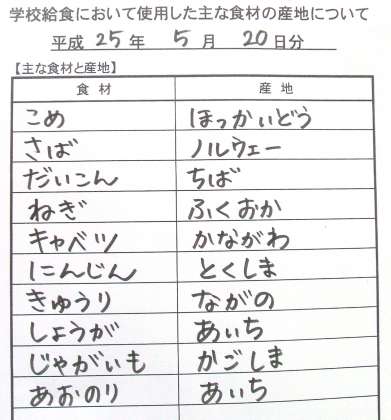 学校給食において使用した主な食材の産地について
平成 25 年 5 月 20 日分
【主な食材と産地】
食材 産地
こめ ほっかいどう
さば ノルウェー
だいこん ちば
ねぎ ふくおか
キャベツ かながわ
にんじん とくしま
きゅうり ながの
しょうが あいち
じゃがいも かごしま
あおのり あいち